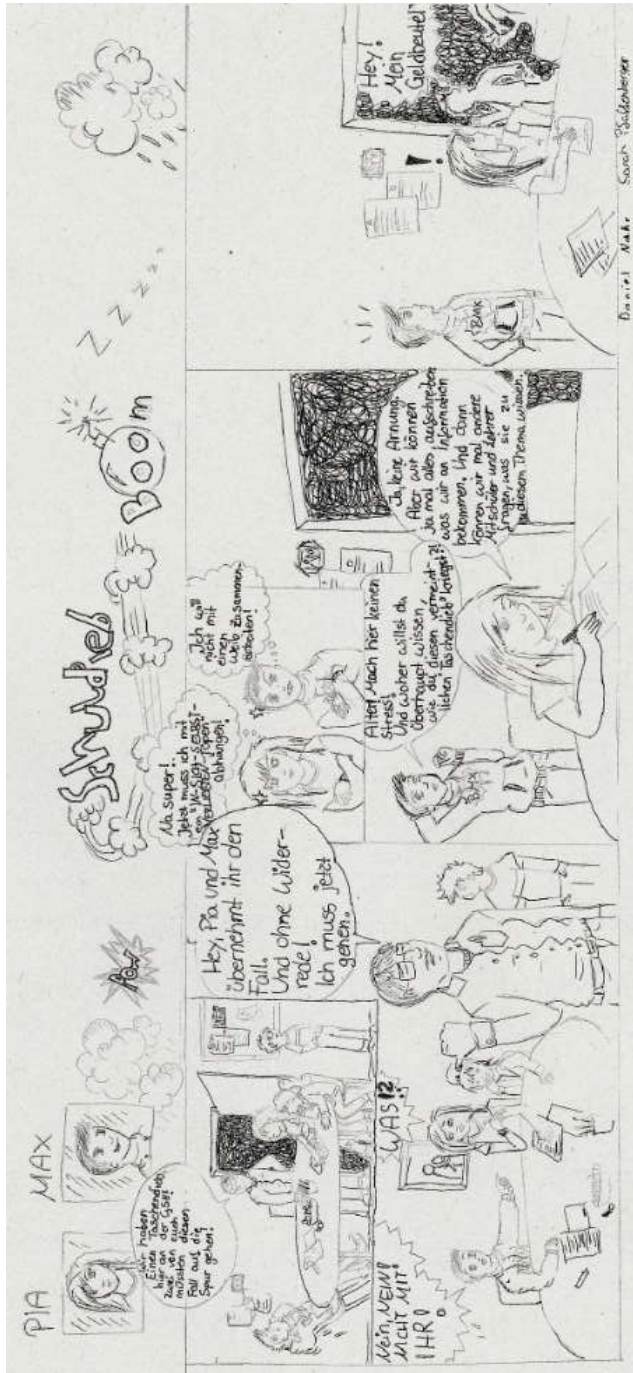 PIA
MAX
Pow
BOOM
Z Z Z Z Z
Wir haben
einen Taschendieb
hier an der GSH!
Zwei von euch
müssten diesen
Fall auf die
Spur gehen!
Nein, NEIN!
NICHT MIT
IHR!
WAS!?
Hey, Pia und Max
übernehmt ihr den
Fall.
Und ohne Wider-
rede!
Ich muss jetzt
gehen.
Na super!
Jetzt muss ich mit
abhängen!
Ich will
nicht mit
einen
Weib zusammen
arbeiten!
Alter! Mach hier keinen
Stress!
Und woher willst du
überhaupt wissen,
wie du diesen vermeint-
lichen "Taschendieb" kriegst?!
Ja, keine Ahnung.
Aber wir können
ja mal alles aufschreiben
was wir an Information
bekommen. Und dann
können wir mal andere
Mitschüler und Lehrer
fragen, was sie zu
diesem Thema wissen.
BMX
!
Hey!
Mein
Geldbeutel
BMX
Daniel Nahr Sarah